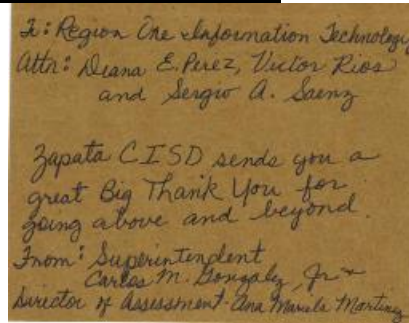 To: Region One Information Technology
Attn: Deana E. Perez, Victor Rios
and Sergio A. Saenz
Zapata CISD sends you a
great Big Thank You for
going above and beyond.
From: Superintendent
Carlos M. Gonzalez, Jr. +
Director of Assessment - Ana Mariela Martinez